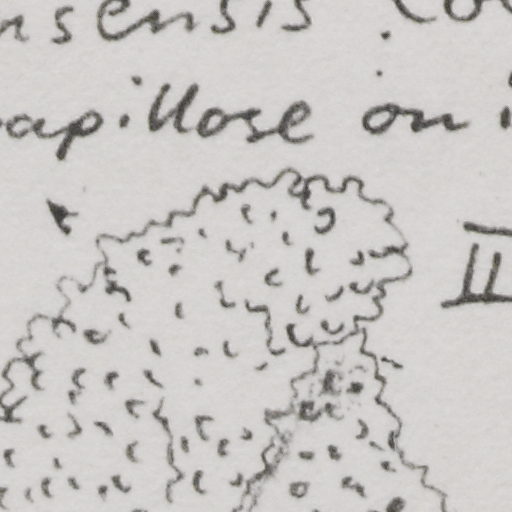 nsensis
papillose on
II